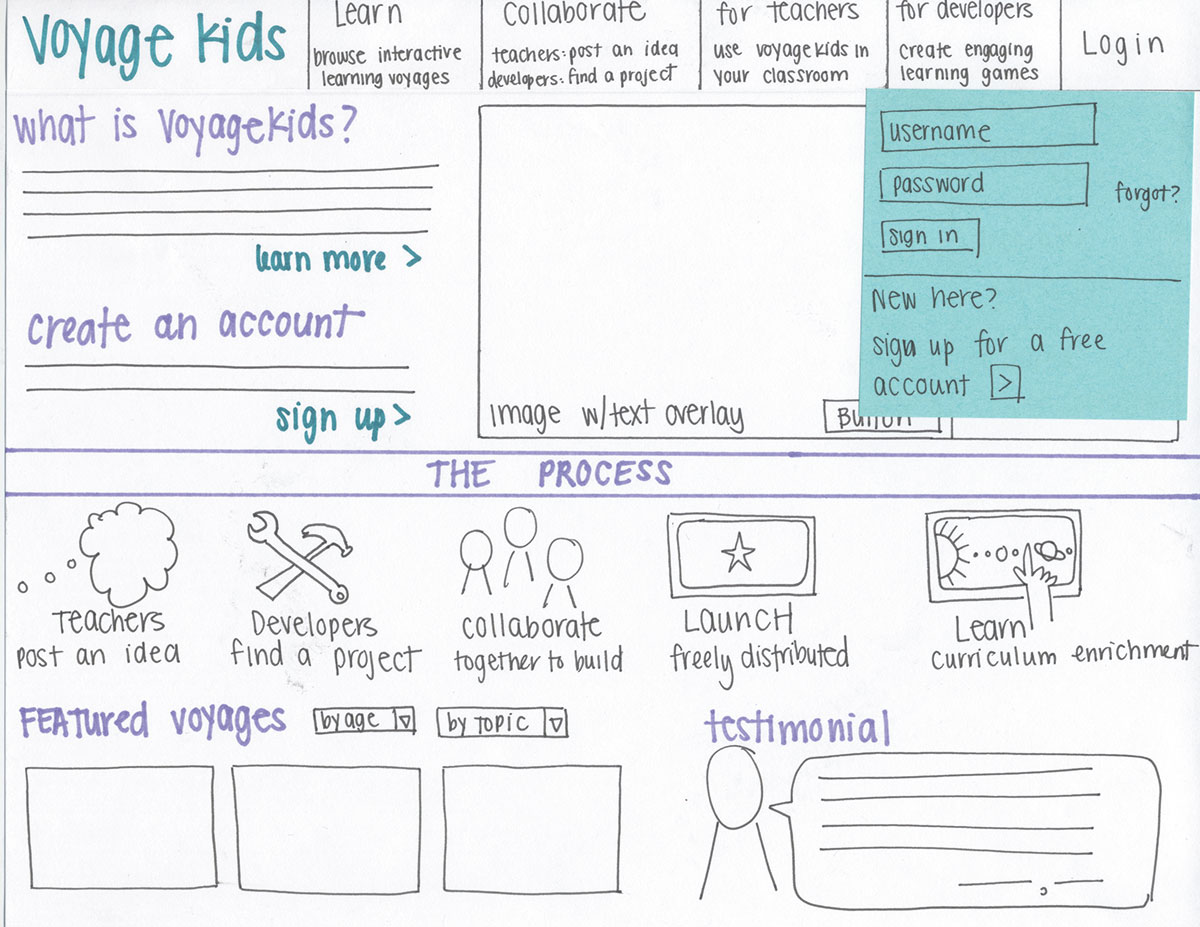 Voyage Kids
Learn
browse interactive
learning voyages
Collaborate
teachers: post an idea
developers: find a project
for teachers
use voyagekids in
your classroom
for developers
create engaging
learning games
Login
what is voyagekids?
learn more >
create an account
sign up >
Image w/text overlay
Button
username
password
forgot?
sign in
New here?
sign up for a free
account >
THE PROCESS
Teachers
post an idea
Developers
find a project
collaborate
together to build
LAUNCH
freely distributed
Learn
curriculum enrichment
FEATured voyages
by age
by TOPIC
testimonial